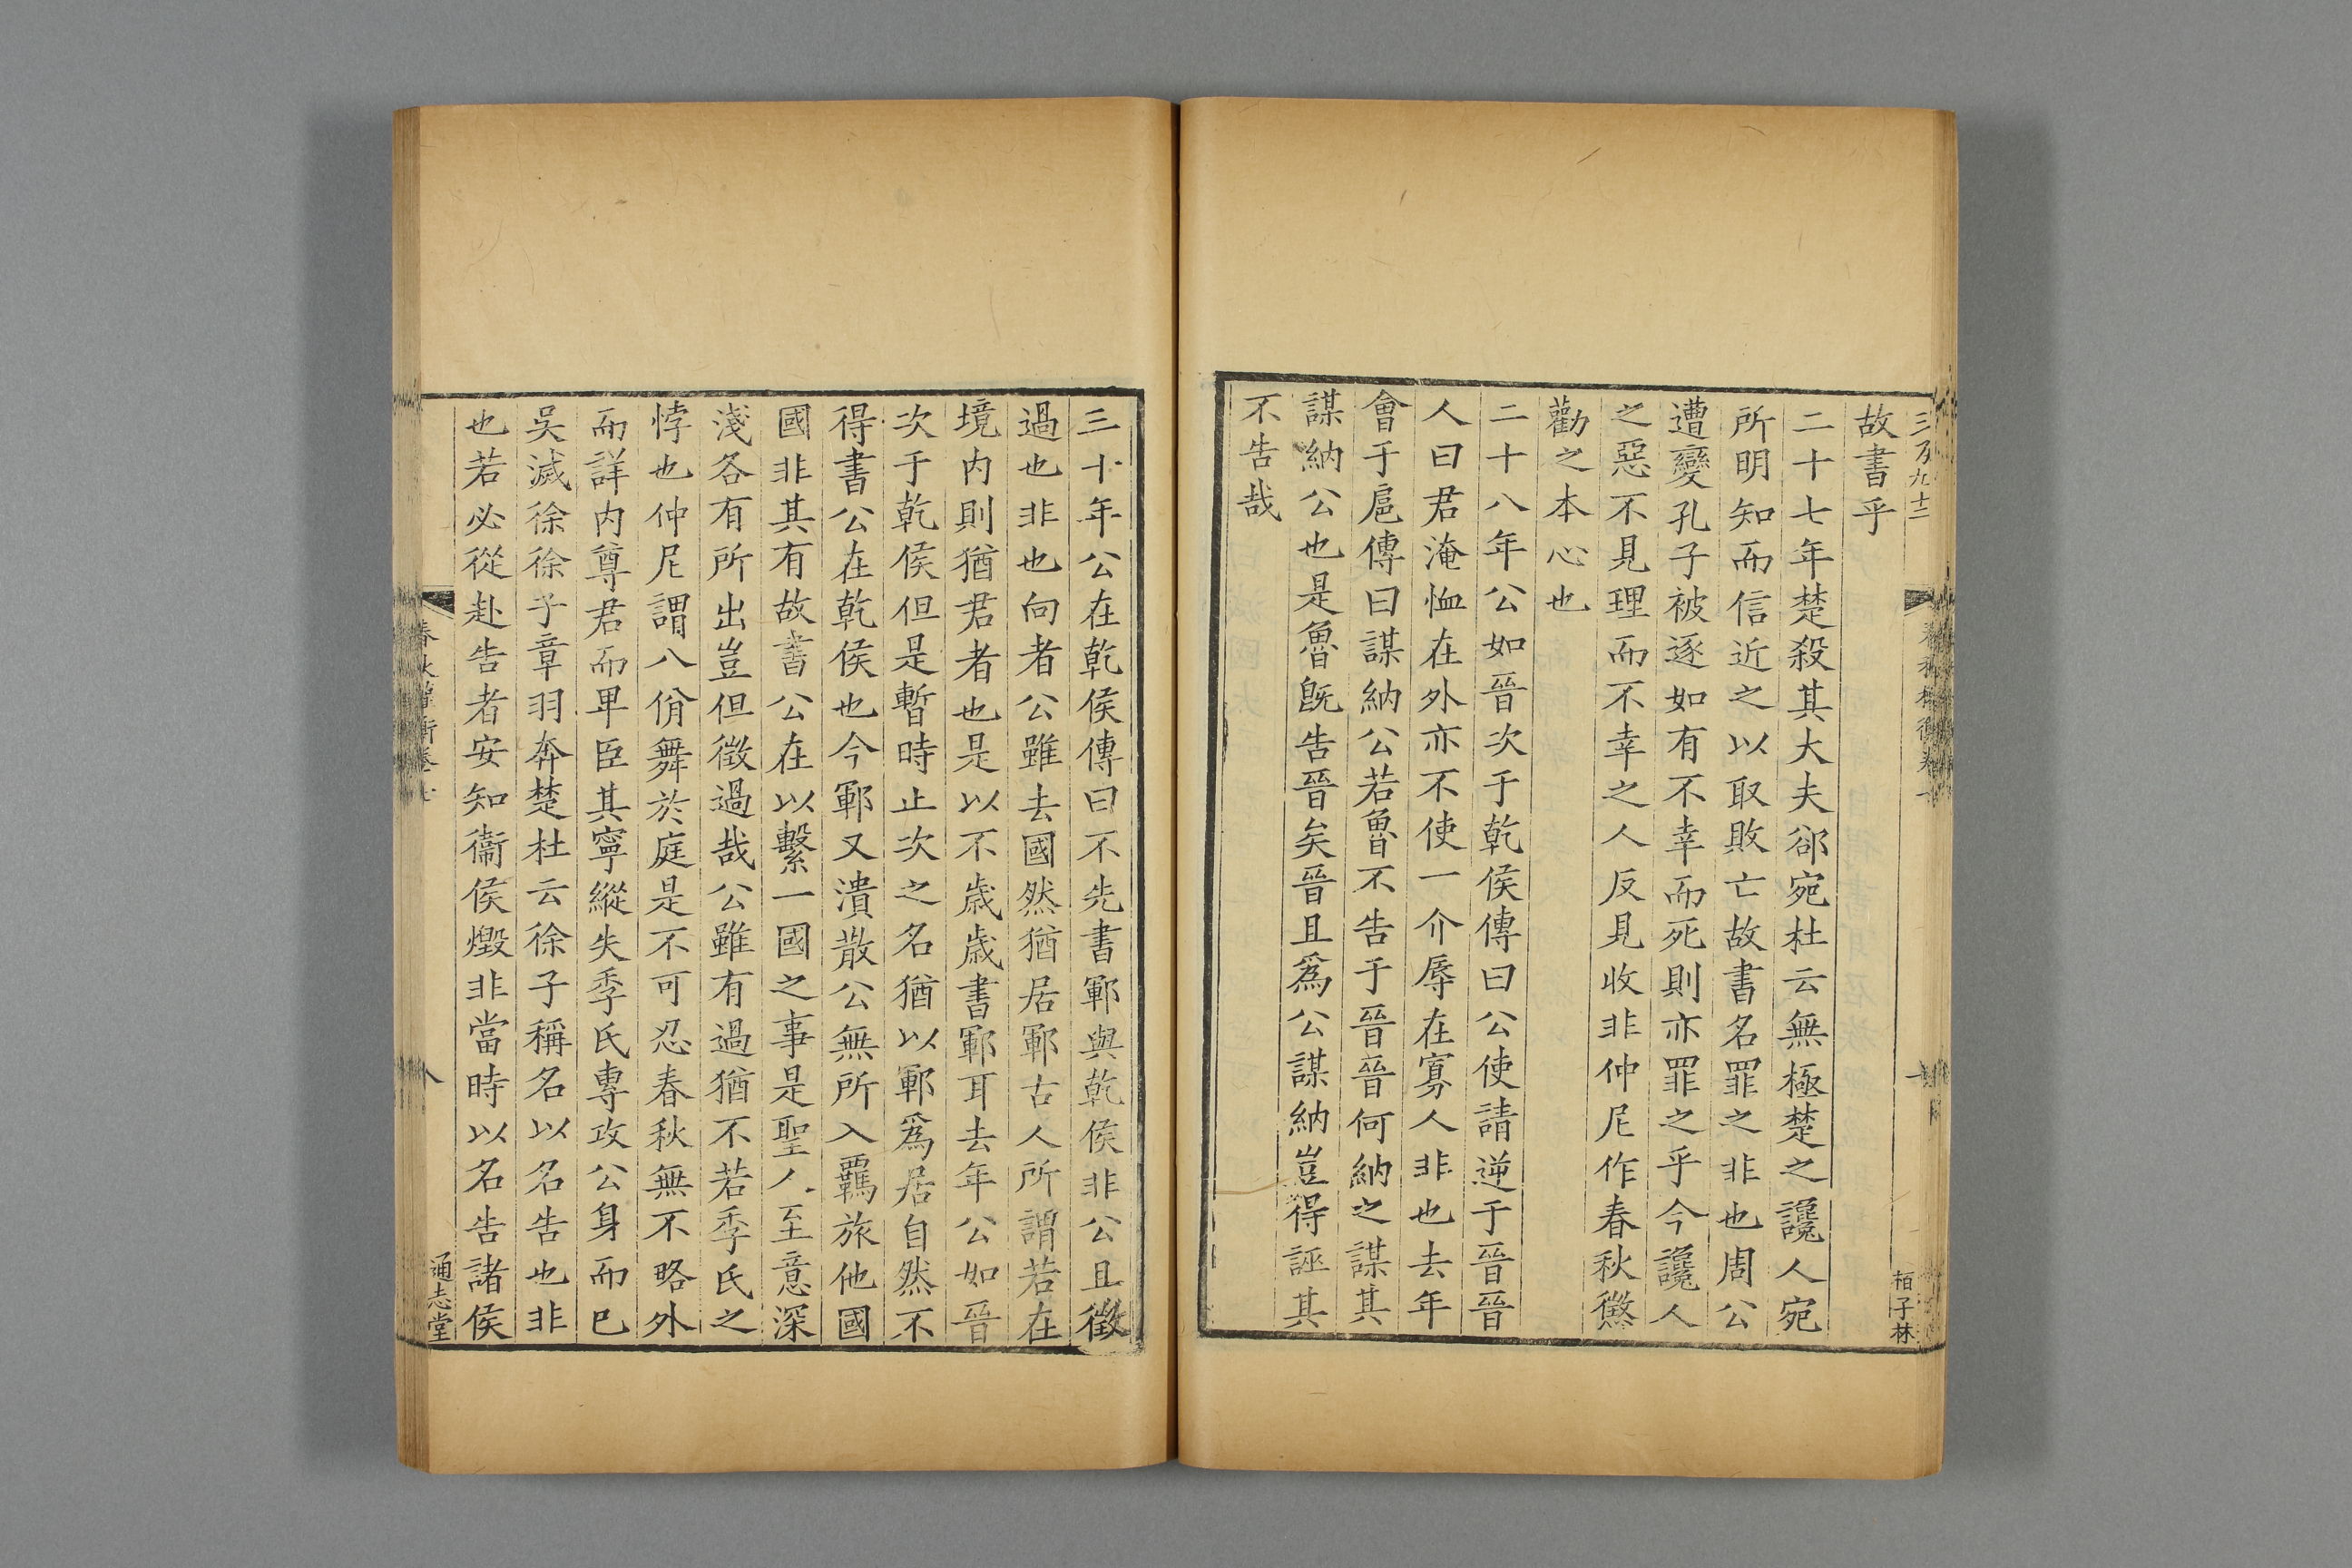 三百九十二
栢子林
故書乎
二十七年楚殺其大夫郤宛杜云無極楚之讒人宛
所明知而信近之以取敗亡故書名罪之非也周公
遭變孔子被逐如有不幸而死則亦罪之乎今讒人
之惡不見理而不幸之人反見收非仲尼作春秋懲
勸之本心也
二十八年公如晉次于乾侯傳曰公使請逆于晉晉
人曰君淹恤在外亦不使一介辱在寡人非也去年
會于扈傳曰謀納公若魯不告于晉晉何納之謀其
謀納公也是魯旣告晉矣晉且爲公謀納豈得誣其
不告哉
三十年公在乾侯傳曰不先書鄆與乾侯非公且徵
過也非也向者公雖去國然猶居鄆古人所謂若在
境內則猶君者也是以不歲歲書鄆耳去年公如晉
次于乾侯但是暫時止次之名猶以鄆爲居自然不
得書公在乾侯也今鄆又潰散公無所入羈旅他國
國非其有故書公在以繫一國之事是聖人至意深
淺各有所出豈但徵過哉公雖有過猶不若季氏之
悖也仲尼謂八佾舞於庭是不可忍春秋無不略外
而詳內尊君而卑臣其寧縱失季氏專攻公身而已
吳滅徐徐子章羽奔楚杜云徐子稱名以名告也非
也若必從赴告者安知衞侯燬非當時以名告諸侯
春秋權衡卷七
八
通志堂